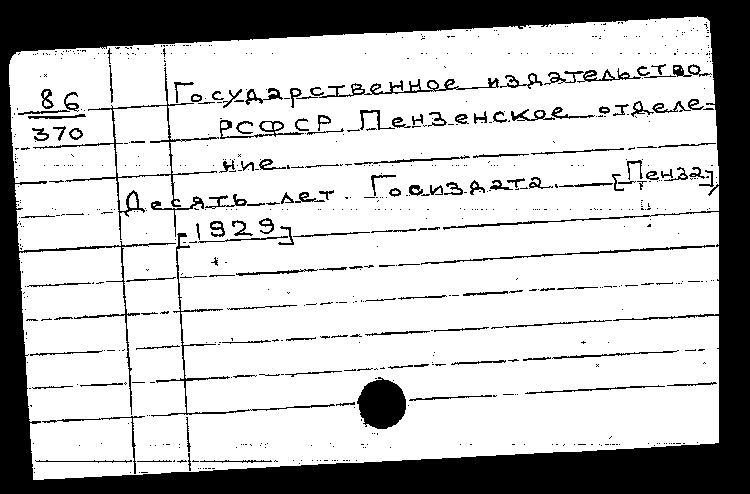 86
370
Государственное издательство
РСФСР. Пензенское отделе-
ние.
Десять лет Госиздата. — [Пенза],
[1929]